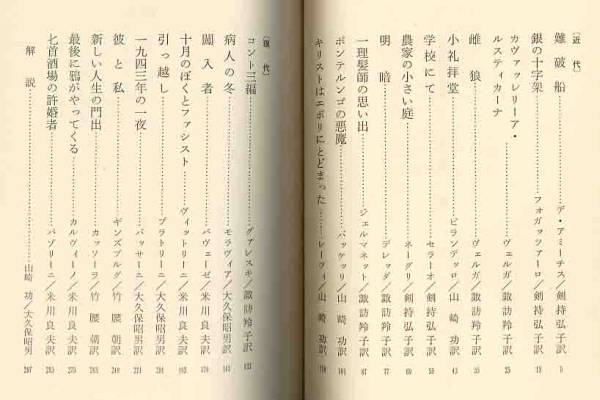 〔近代〕
難破船……デ・アミーチス／剣持弘子訳 5
銀の十字架……フォガッツァーロ／剣持弘子訳
カヴァッレリーア・
ルスティカーナ……ヴェルガ／諏訪羚子訳 25
雌狼……ヴェルガ／諏訪羚子訳 35
小礼拝堂……ピランデッロ／山崎功訳
学校にて……セラーオ／剣持弘子訳
農家の小さい庭……ネーグリ／剣持弘子訳
明暗……デレッダ／諏訪羚子訳 77
一理髪師の思い出……ジェルマネット／諏訪羚子訳 87
ポンテルンゴの悪魔……バッケッリ／山崎功訳 101
キリストはエボリにとどまった……レーヴィ／山崎功訳
〔現代〕
コント三編……グアレスキ／諏訪羚子訳
病人の冬……モラヴィア／大久保昭男訳
闖入者……パヴェーゼ／米川良夫訳
十月のぼくとファシスト……ヴィットリーニ／米川良夫訳
引っ越し……プラトリーニ／大久保昭男訳
一九四三年の一夜……バッサーニ／大久保昭男訳
彼と私……ギンズブルグ／竹腰朝訳
新しい人生の門出……カッソーラ／竹腰朝訳
最後に鴉がやってくる……カルヴィーノ／米川良夫訳
七首酒場の許婚者……パゾリーニ／米川良夫訳
解説……山崎功／大久保昭男 287